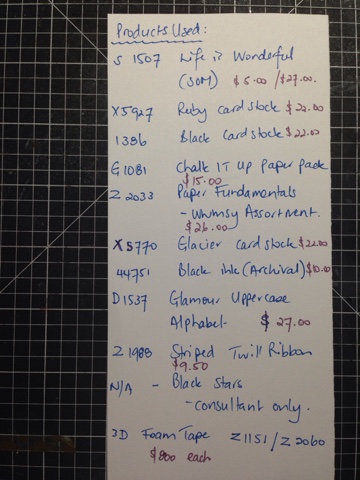 Products Used:
S 1507 Life is Wonderful
(SOM) $5.00 / $27.00.
X5927 Ruby card stock $22.00
1386 Black Cardstock $22.00
G1081 Chalk IT Up Paper pack
$15.00
Z 2033 Paper Fundamentals
- Whimsy Assortment.
$26.00
X5770 Glacier card stock $22.00
44751 Black ink (Archival) $10.00
D1537 Glamour Uppercase
Alphabet- $ 27.00
Z 1988 Striped Twill Ribbon
$9.50
N/A - Black Stars
- consultant only.
3D Foam Tape Z1151 / Z 2060
$800 each